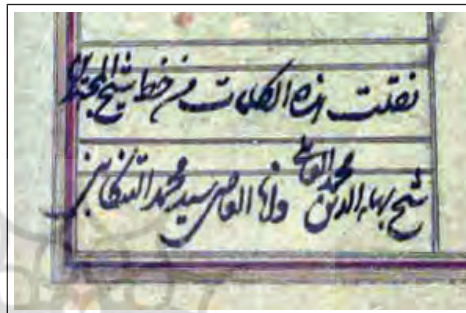 نقلت هذه الکلمات من خط شیخ المجتهدین
شیخ بهاءالدین محمد العاملی وانا العاصی سید محمد التنکابنی